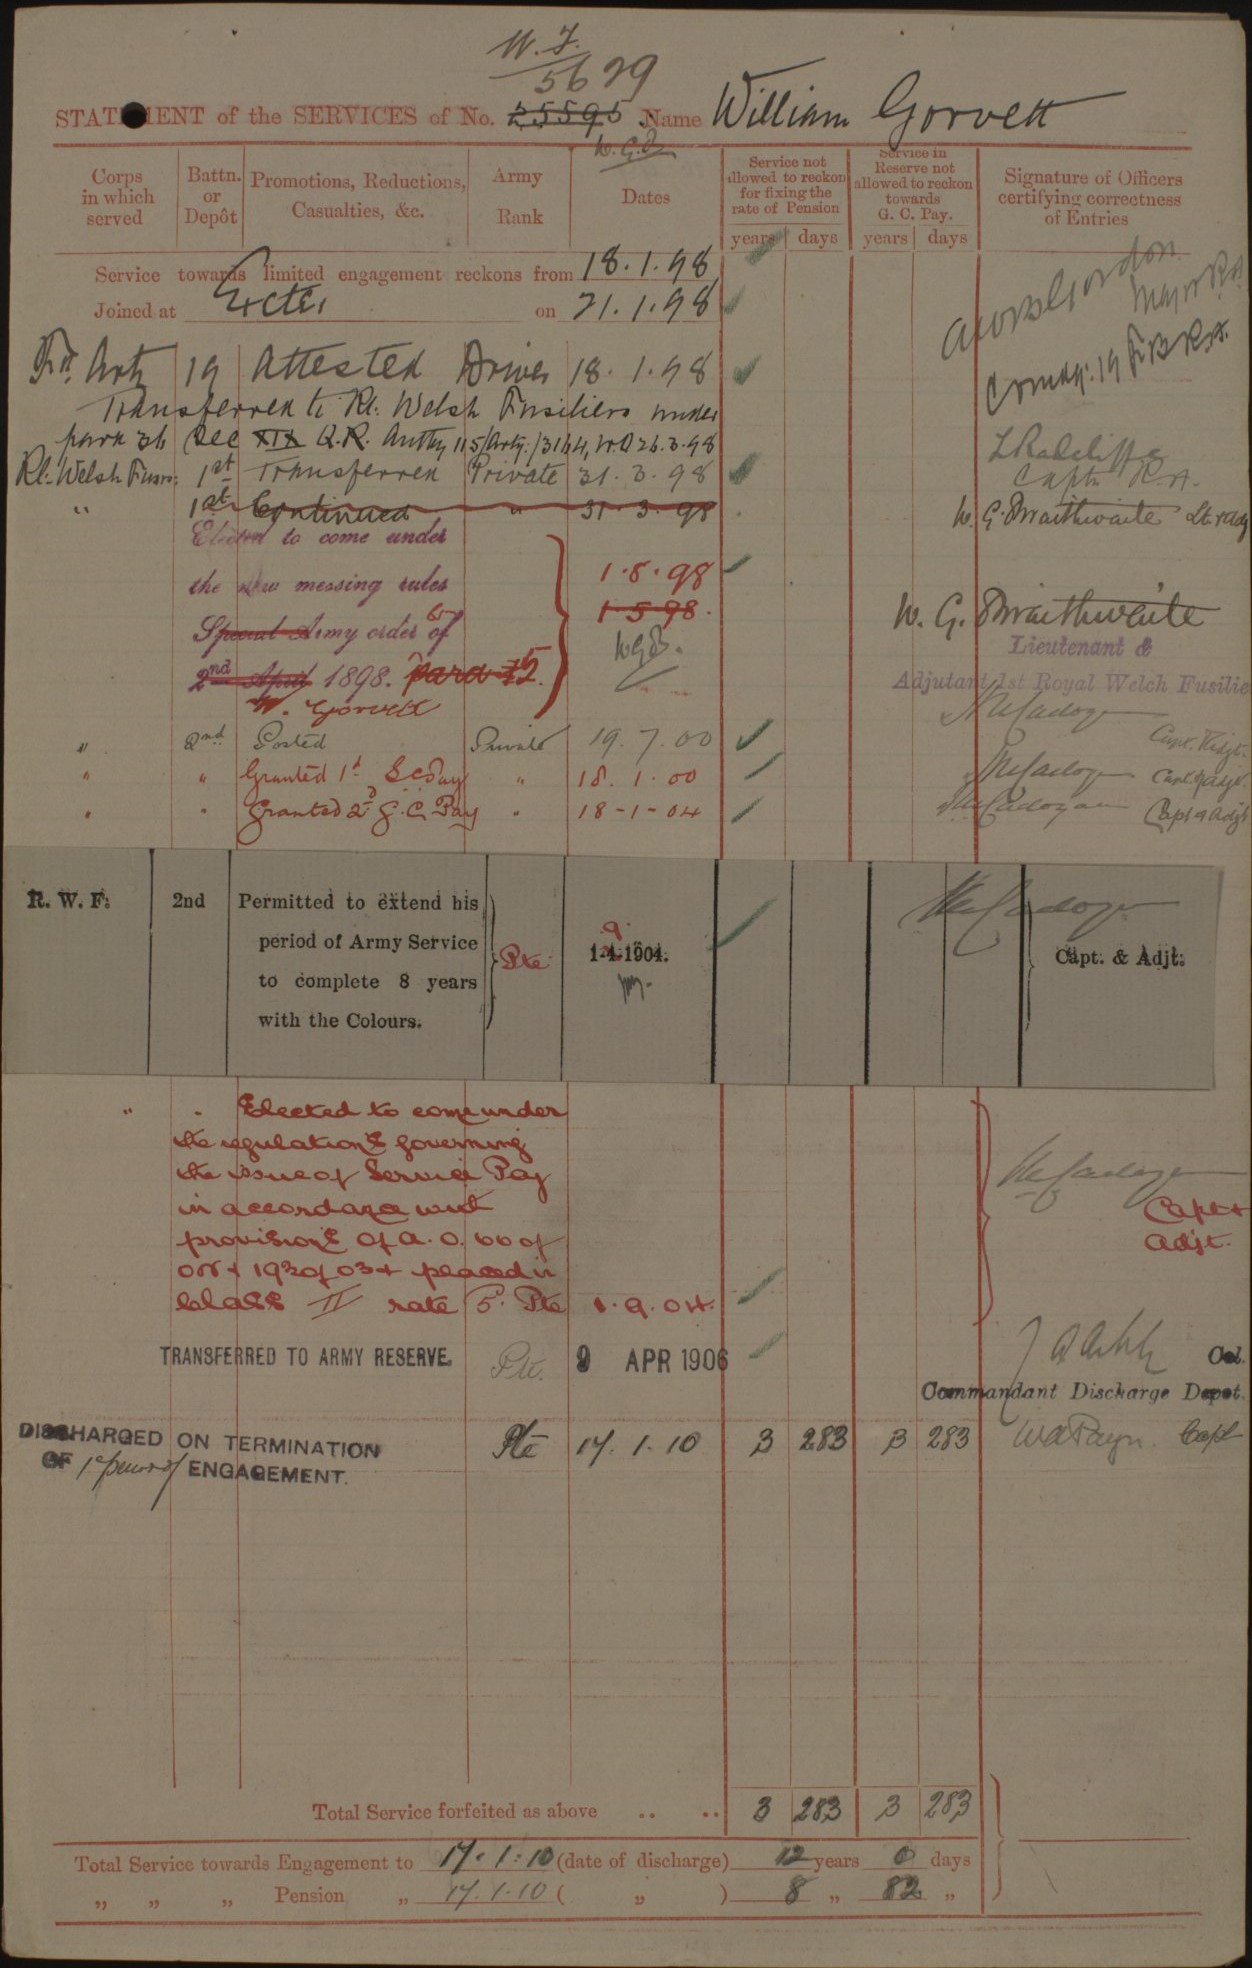 W. F.
5629
STATEMENT of the SERVICES of No. 25595 Name William Gorvett
W.G.B.
Corps in which served
Battn. or Depôt
Promotions, Reductions, Casualties, &c.
Army Rank
Dates
Service not allowed to reckon for fixing the rate of Pension
Service in Reserve not allowed to reckon towards G. C. Pay.
Signature of Officers certifying correctness of Entries
years days years days
Service towards limited engagement reckons from 18.1.98
Joined at Exeter on 21.1.98
Gordon
Major R.A.
Fd. Arty 19 Attested Driver 18.1.98
Comdg. 19 F.B. R.A.
Transferred to Rl. Welsh Fusiliers under
para 36 Sec XIX Q.R. Authy 115/Arty/3164, W.O 26.3.98
L Radcliffe
Rl. Welsh Fusrs: 1st Transferred Private 31.3.98
Capt. R.A.
" 1st Continued " 31.3.98
W. G. Braithwaite Lt. & Adj
Elected to come under
the new messing rules 1.5.98
1-5-98.
Special Army order 65 of W.G.B.
2nd April 1898. para 5
W. Gorvett
W. G. Braithwaite
Lieutenant &
Adjutant 1st Royal Welch Fusilie
" 2nd Posted Private 19.7.00 Cadogan Capt. & Adjt.
" " Granted 1st G C Pay " 18.1.00 Cadogan Capt & Adjt.
" " Granted 2d G. C. Pay " 18-1-04 Cadogan Capt & Adjt
R. W. F: 2nd Permitted to extend his
period of Army Service
to complete 8 years
with the Colours.
Pte 1-9-1904.
Cadogan
Capt. & Adjt:
" " Elected to come under
the regulations governing
the issue of Service Pay
in accordance with
provisions of A. O. 66 of
02 & 193 of 03 & placed in
Class II rate 5. Pte 1.9.04.
Cadogan
Capt &
Adjt.
TRANSFERRED TO ARMY RESERVE. Pte. 9 APR 1906
Col.
Commandant Discharge Depot.
DISCHARGED ON TERMINATION
OF 1st period of ENGAGEMENT.
Pte 17.1.10 3 283 3 283 Capt
Total Service forfeited as above .. .. 3 283 3 283
Total Service towards Engagement to 17.1.10 (date of discharge) 12 years 0 days
" " " Pension " 17.1.10 ( " ) 8 " 82 "